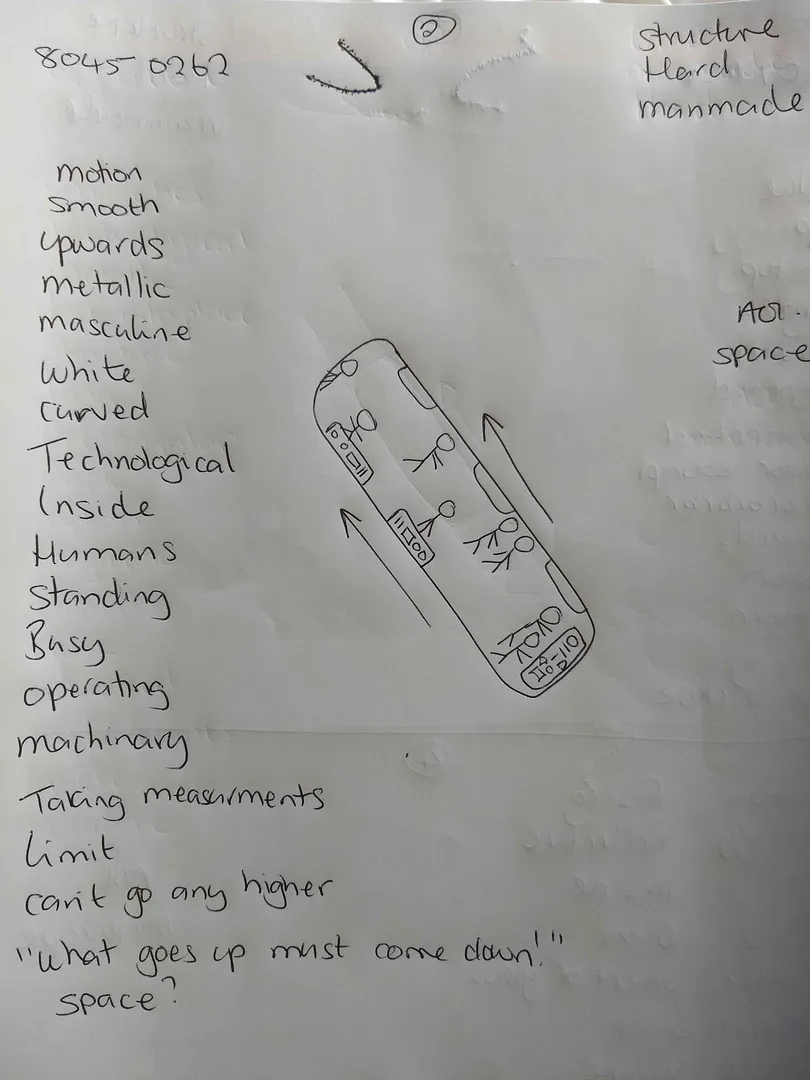 2
8045 0262
structure
Hard
manmade
motion
smooth
upwards
metallic
masculine
white
curved
Technological
Inside
Humans
standing
Busy
operating
machinary
Taking measurments
limit
can't go any higher
"what goes up must come down!"
space?
AOL.
space